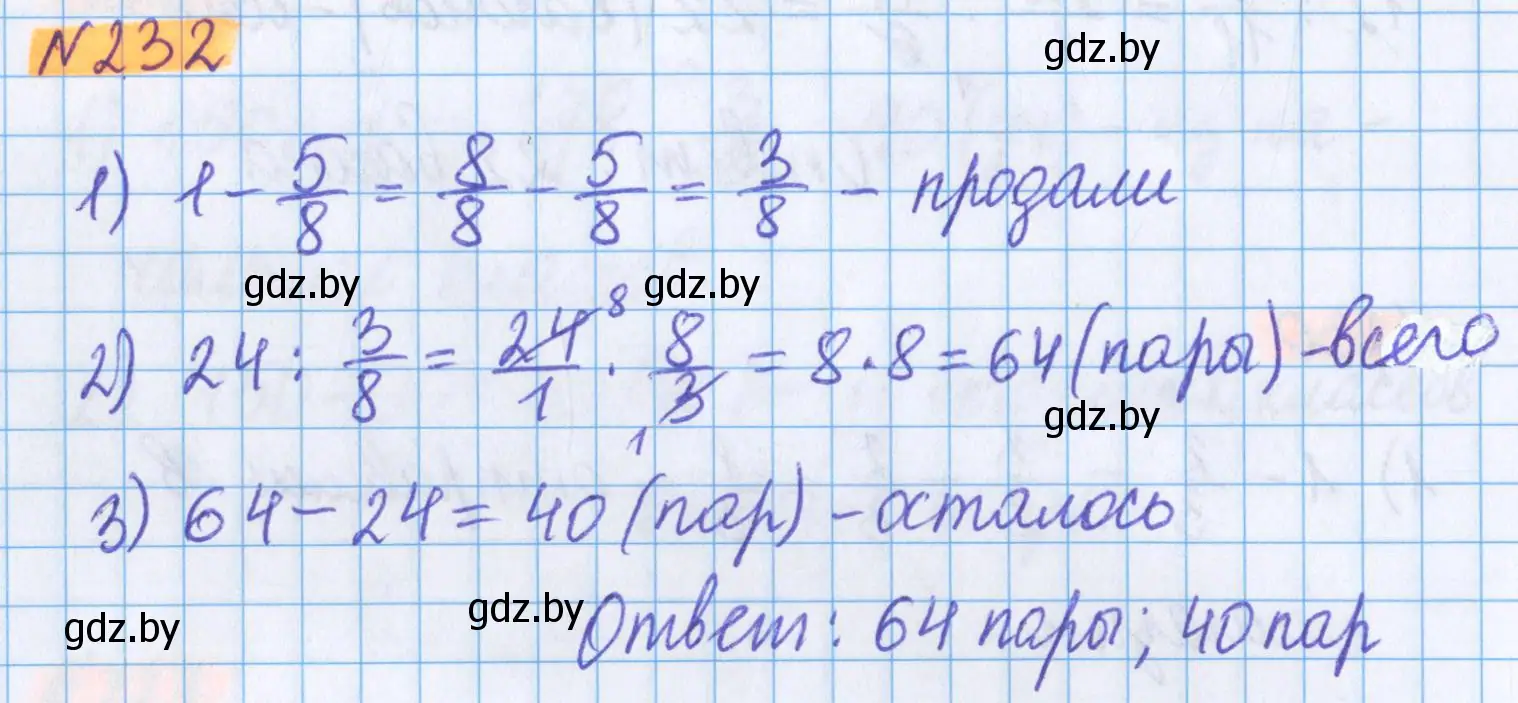 №232
gdz.by
1) 1 - 5/8 = 8/8 - 5/8 = 3/8 - продали
gdz.by gdz.by
2) 24 : 3/8 = 24/1 · 8/3 = 8·8 = 64 (пары) - всего
8
1
gdz.by
3) 64 - 24 = 40 (пар) - осталось
gdz.by
gdz.by
Ответ: 64 пары; 40 пар